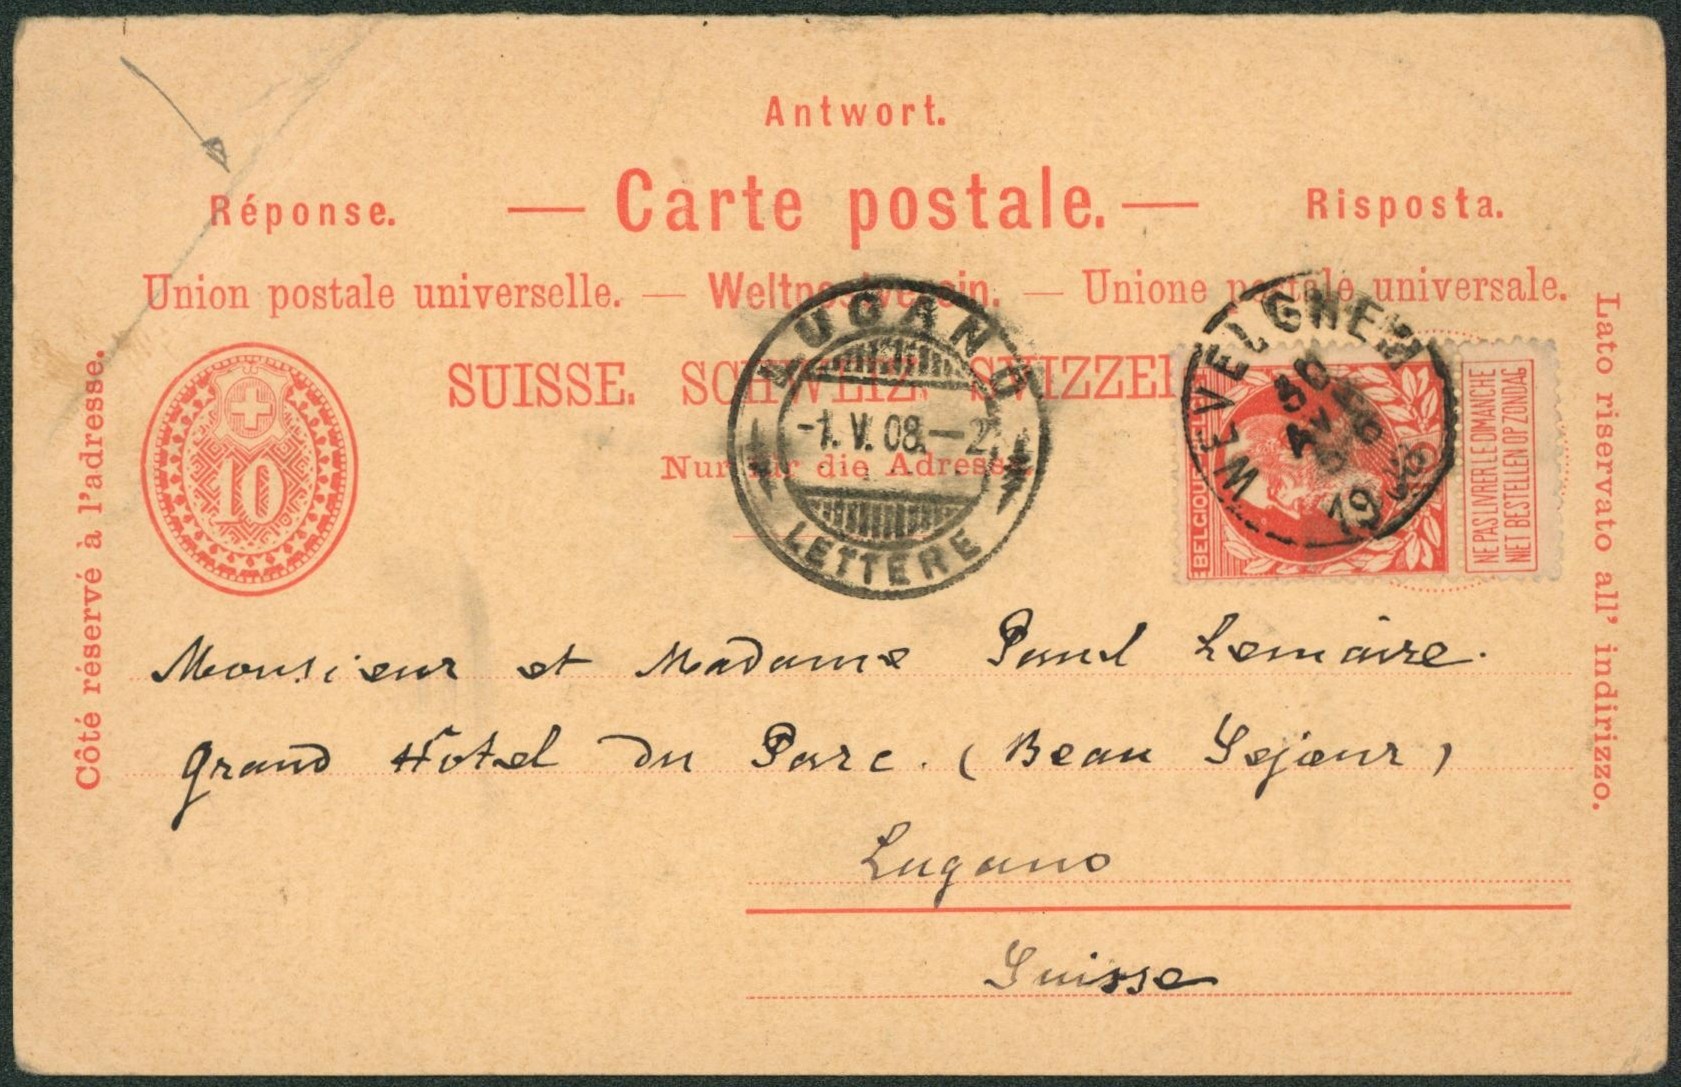 Antwort.
Réponse. — Carte postale. — Risposta.
Union postale universelle. — Weltpostverein. — Unione postale universale.
SUISSE. SCHWEIZ. SVIZZERA
Nur für die Adresse.
Côté réservé à l'adresse.
Lato riservato all' indirizzo.
10
LUGANO
-1. V. 08.—2
LETTERE
WEVELGHEM
AV
19
BELGIQUE
NE PAS LIVRER LE DIMANCHE
NIET BESTELLEN OP ZONDAG
Monsieur et Madame Paul Lemaire.
Grand Hotel du Parc. (Beau Sejour)
Lugano
Suisse